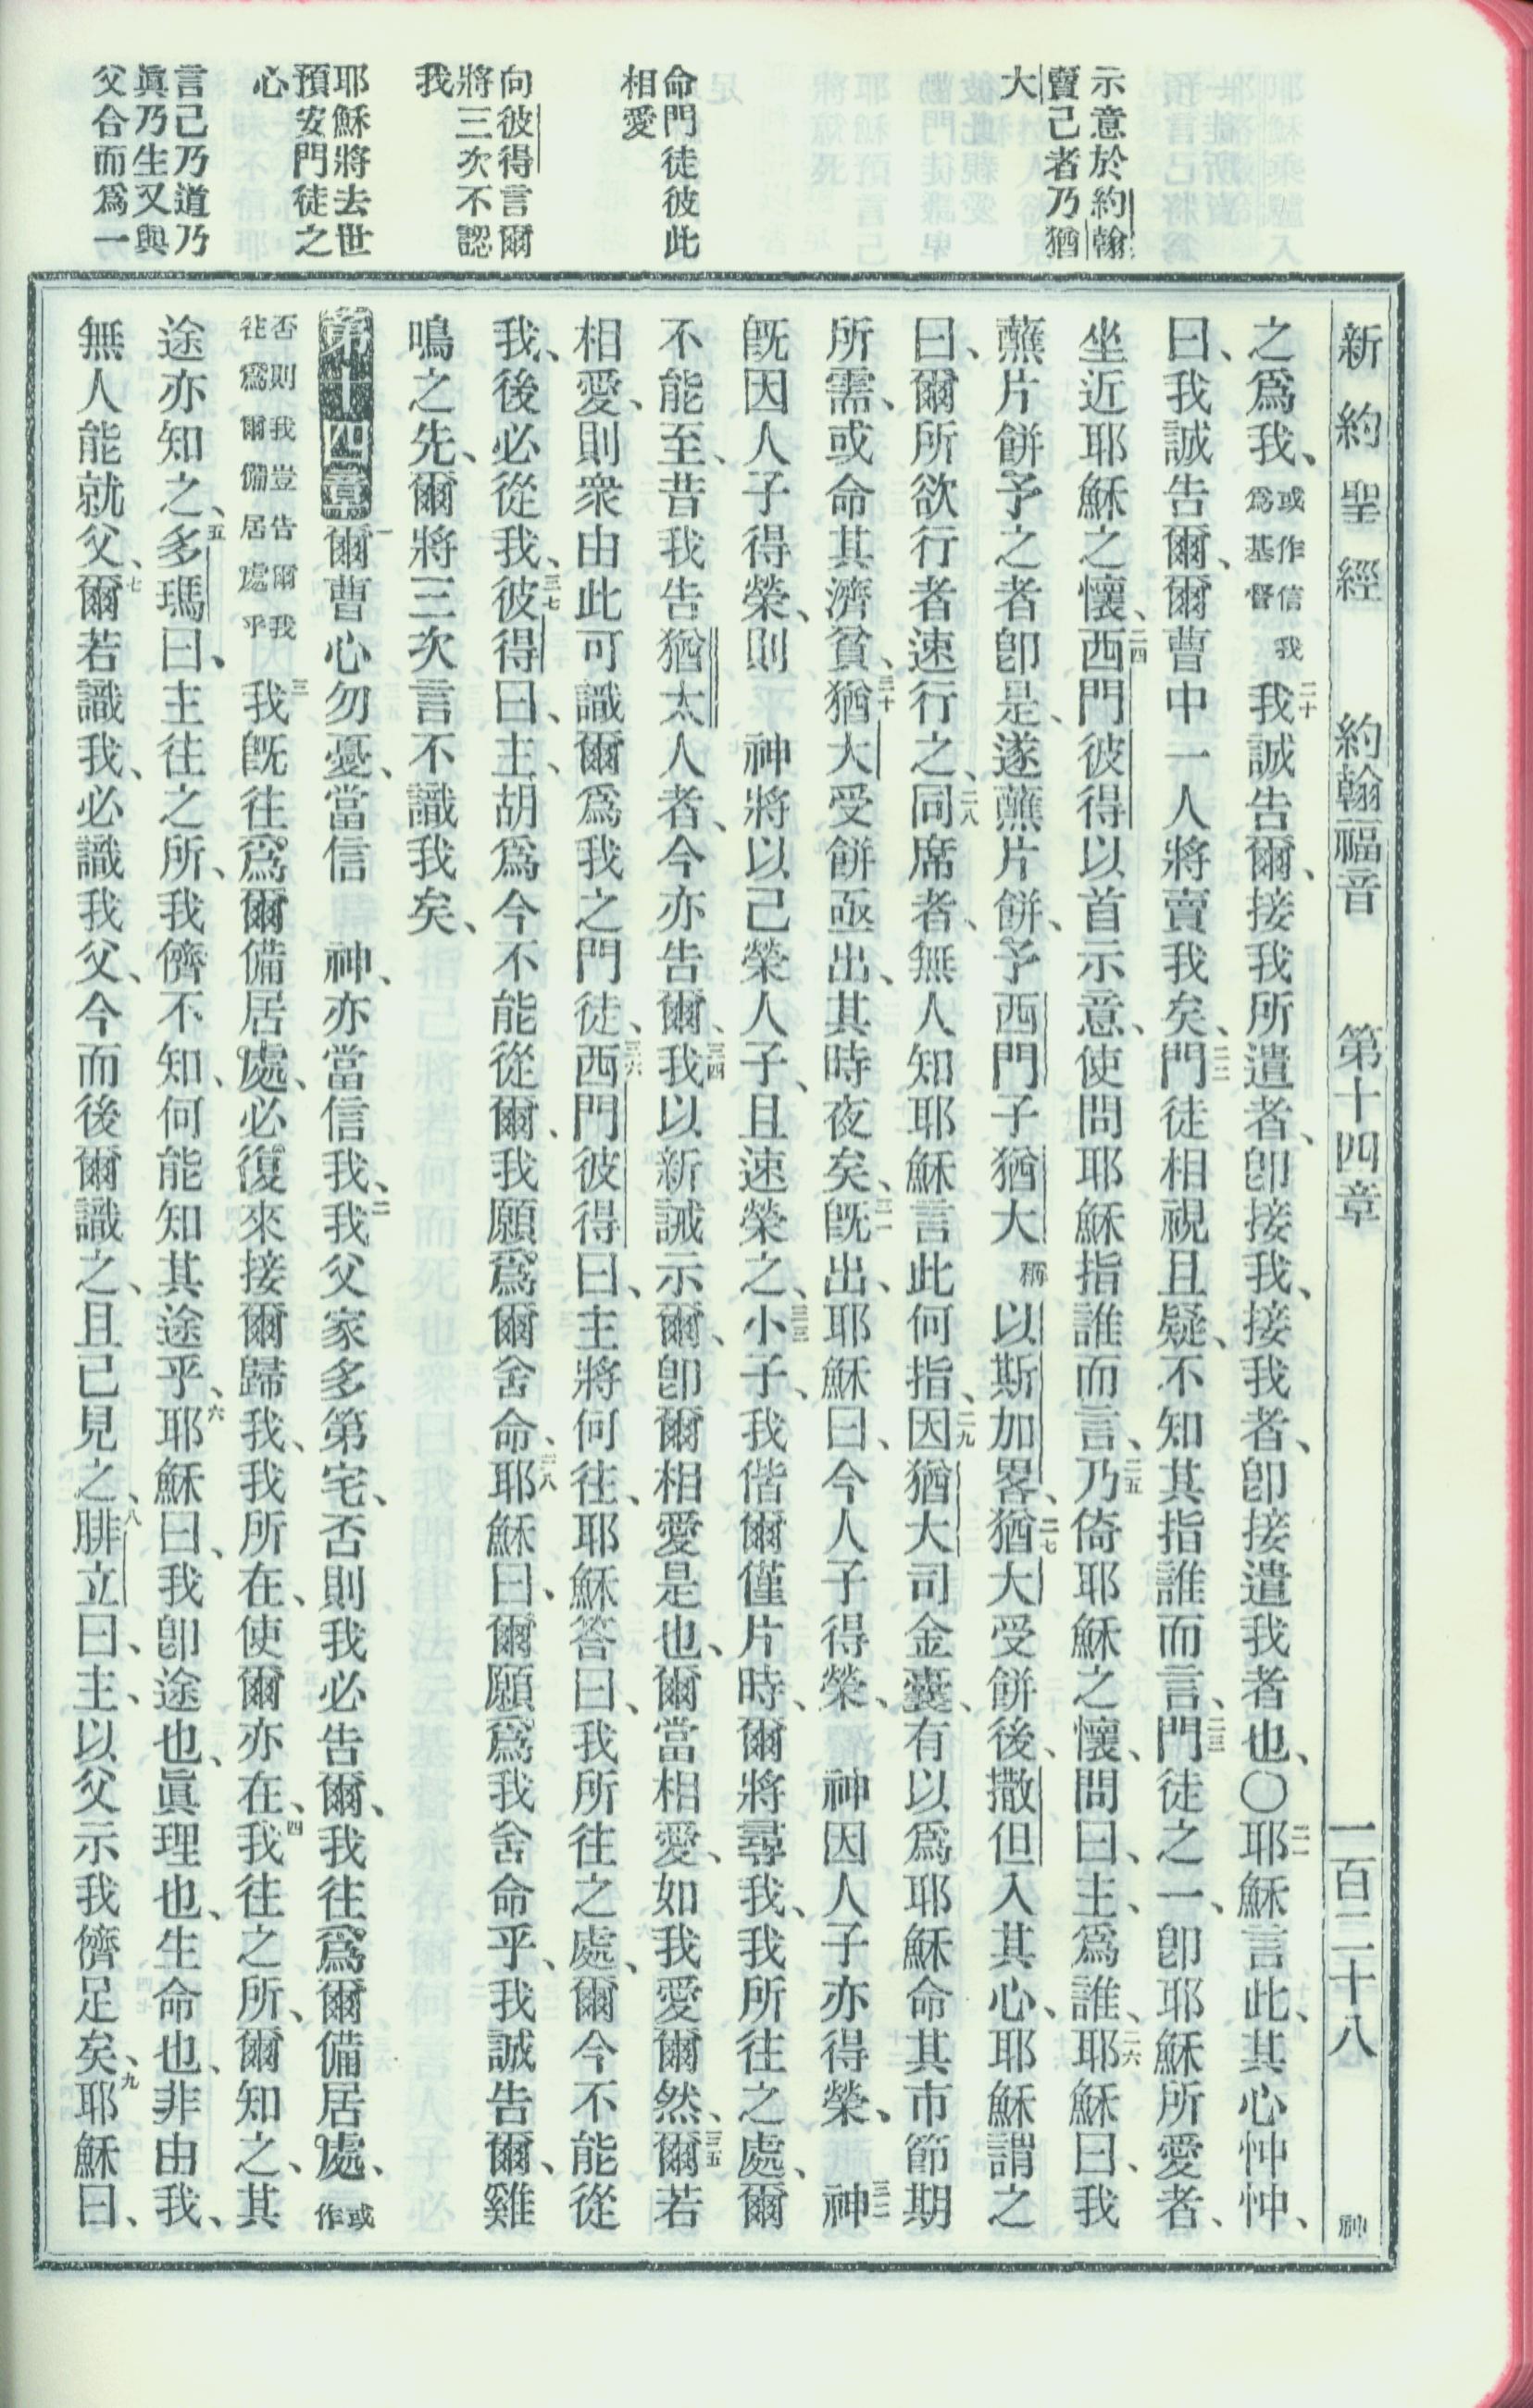 新約聖經 約翰福音 第十四章 一百二十八 神
示意於約翰
賣己者乃猶
大
命門徒彼此
相愛
向彼得言爾
將三次不認
我
耶穌將去世
預安門徒之
心
言己乃道乃
眞乃生又與
父合而爲一
之爲我、或作信我爲基督二十我誠告爾、接我所遣者、卽接我、接我者、卽接遣我者也、〇二一耶穌言此、其心忡忡、
曰、我誠告爾、爾曹中一人將賣我矣、二二門徒相視且疑、不知其指誰而言、二三門徒之一、卽耶穌所愛者、
坐近耶穌之懷、二四西門彼得以首示意、使問耶穌指誰而言、二五乃倚耶穌之懷、問曰、主、爲誰、二六耶穌曰、我
蘸片餅予之者卽是、遂蘸片餅、予西門子猶大稱以斯加畧、二七猶大受餅後、撒但入其心、耶穌謂之
曰、爾所欲行者速行之、二八同席者、無人知耶穌言此何指、二九因猶大司金囊、有以爲耶穌命其市節期
所需、或命其濟貧、三十猶大受餅亟出、其時夜矣、三一旣出、耶穌曰、今人子得榮、 神因人子亦得榮、三二 神
旣因人子得榮、則 神將以己榮人子、且速榮之、三三小子、我偕爾僅片時、爾將尋我、我所往之處、爾
不能至、昔我告猶太人者、今亦告爾、三四我以新誡示爾、卽爾相愛是也、爾當相愛、如我愛爾然、三五爾若
相愛、則衆由此可識爾爲我之門徒、三六西門彼得曰、主將何往、耶穌答曰、我所往之處、爾今不能從
我、後必從我、三七彼得曰、主、胡爲今不能從爾、我願爲爾舍命、三八耶穌曰、爾願爲我舍命乎、我誠告爾、雞
鳴之先、爾將三次言不識我矣、
第十四章 一爾曹心勿憂、當信 神、亦當信我、二我父家多第宅、否則我必告爾、我往爲爾備居處、或作
否則我豈告爾我往爲爾備居處乎三我旣往爲爾備居處、必復來接爾歸我、我所在、使爾亦在、四我往之所、爾知之、其
途亦知之、五多瑪曰、主往之所、我儕不知、何能知其途乎、六耶穌曰、我卽途也、眞理也、生命也、非由我、
無人能就父、七爾若識我、必識我父、今而後爾識之、且已見之、八腓立曰、主、以父示我儕足矣、九耶穌曰、